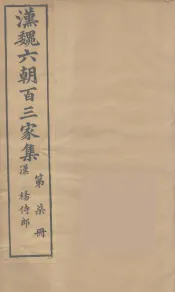 漢魏六朝百三家集
漢 揚侍郎
第柒冊